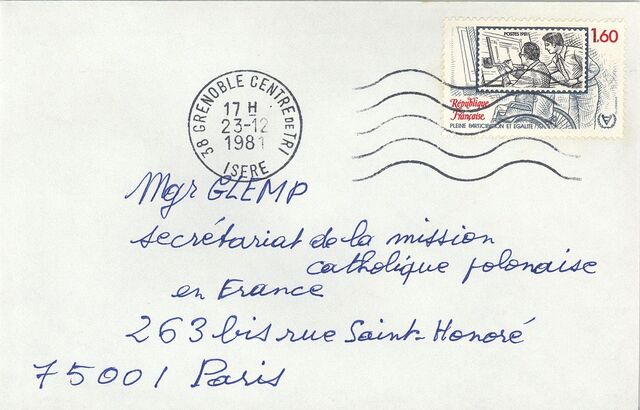 POSTES 1981
1.60
République
Française
PLEINE PARTICIPATION ET EGALITE
38 GRENOBLE CENTRE DE TRI
17 H
23-12
1981
ISERE
Mgr GLEMP
secrétariat de la mission
catholique polonaise
en France
263 bis rue Saint-Honoré
75001 Paris